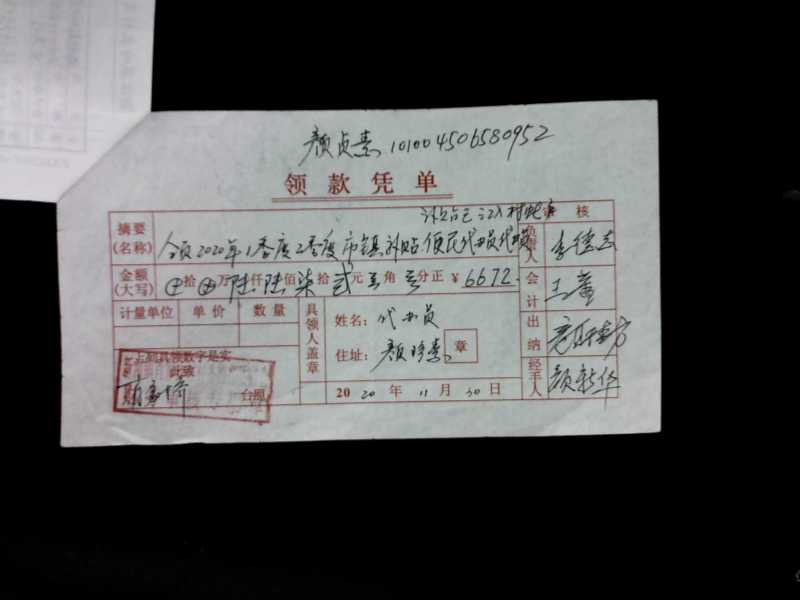 颜贞素 101004506580952
领款凭单
审核
摘要(名称) 今领2020年1季度2季度市镇补贴便民代办员代办费
金额(大写) 拾 万陆仟陆佰柒拾贰元 角 分正 ¥6672.
负责人
会计 王
计量单位 单价 数量
具领人盖章
姓名:代办员
住址:颜 素
章
出纳
上列具领数字是实
此致
台照
2020年11月30日
经手人 颜新华